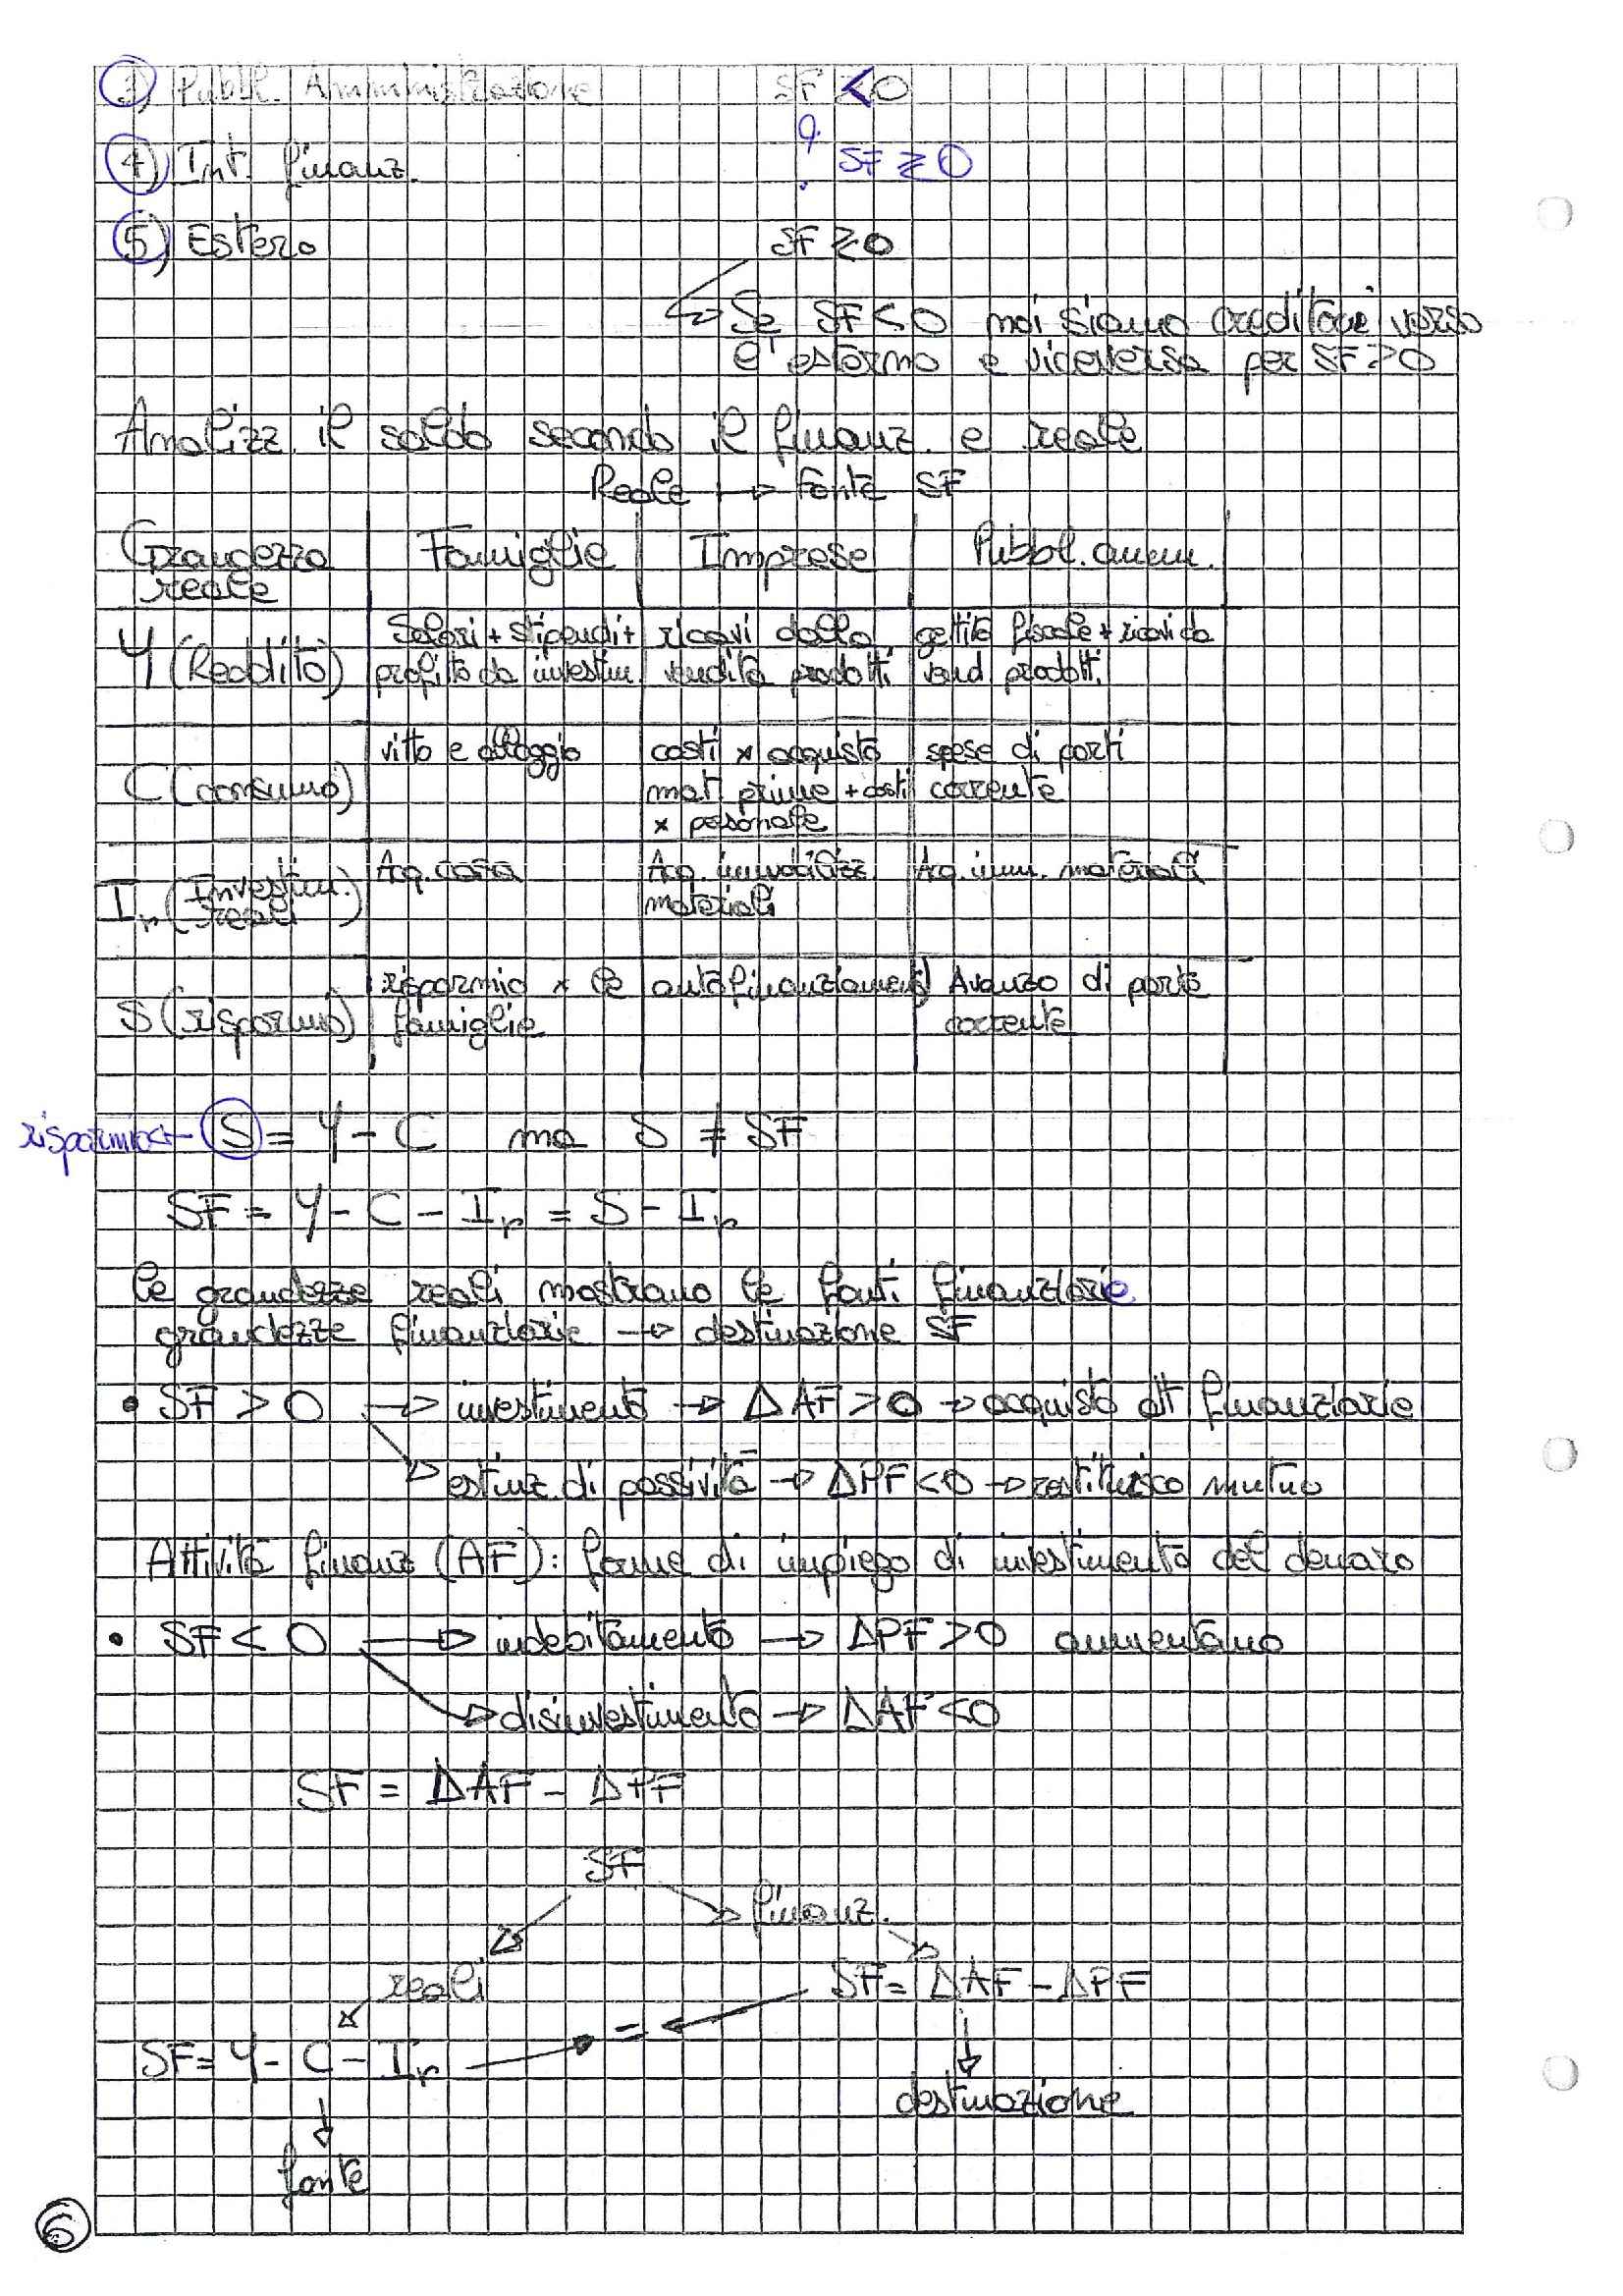 3) Pubbl. Amministrazione SF < 0
4) Int. finanz. ? SF ≷ 0
5) Estero SF ≷ 0
↳ Se SF < 0 noi siamo creditori verso
l'esterno e viceversa per SF > 0
Analizz. il saldo secondo il finanz. e reale
Reale → Fonte SF
Grandezza reale | Famiglie | Imprese | Pubbl. amm.
Y (Reddito) | Salari + stipendi + profitto da investim. | ricavi dalla vendita prodotti | gettito fiscale + ricavi da vend prodotti.
C (consumo) | vitto e alloggio | costi x acquisto mat prime + costi x personale | spese di parti corrente
Ir (Investim. reali) | Acq. casa | Acq. immobilizz. materiali | Acq. imm. materiali
S (risparmio) | risparmio x le famiglie | autofinanziamento | Avanzo di parte corrente
risparmio ← S = Y - C ma S ≠ SF
SF = Y - C - Ir = S - Ir
le grandezze reali mostrano le fonti finanziarie
grandezze finanziarie → destinazione SF
• SF > 0 → investimento → ΔAF > 0 → acquisto att finanziarie
↘ estinz. di passività → ΔPF < 0 → restituisco mutuo
Attività finanz (AF): forme di impiego di investimento del denaro
• SF < 0 → indebitamento → ΔPF > 0 aumentano
↘ disinvestimento → ΔAF < 0
SF = ΔAF - ΔPF
SF
finanz.
reali SF = ΔAF - ΔPF
SF = Y - C - Ir → = ←
↓ destinazione
↓ fonte
6